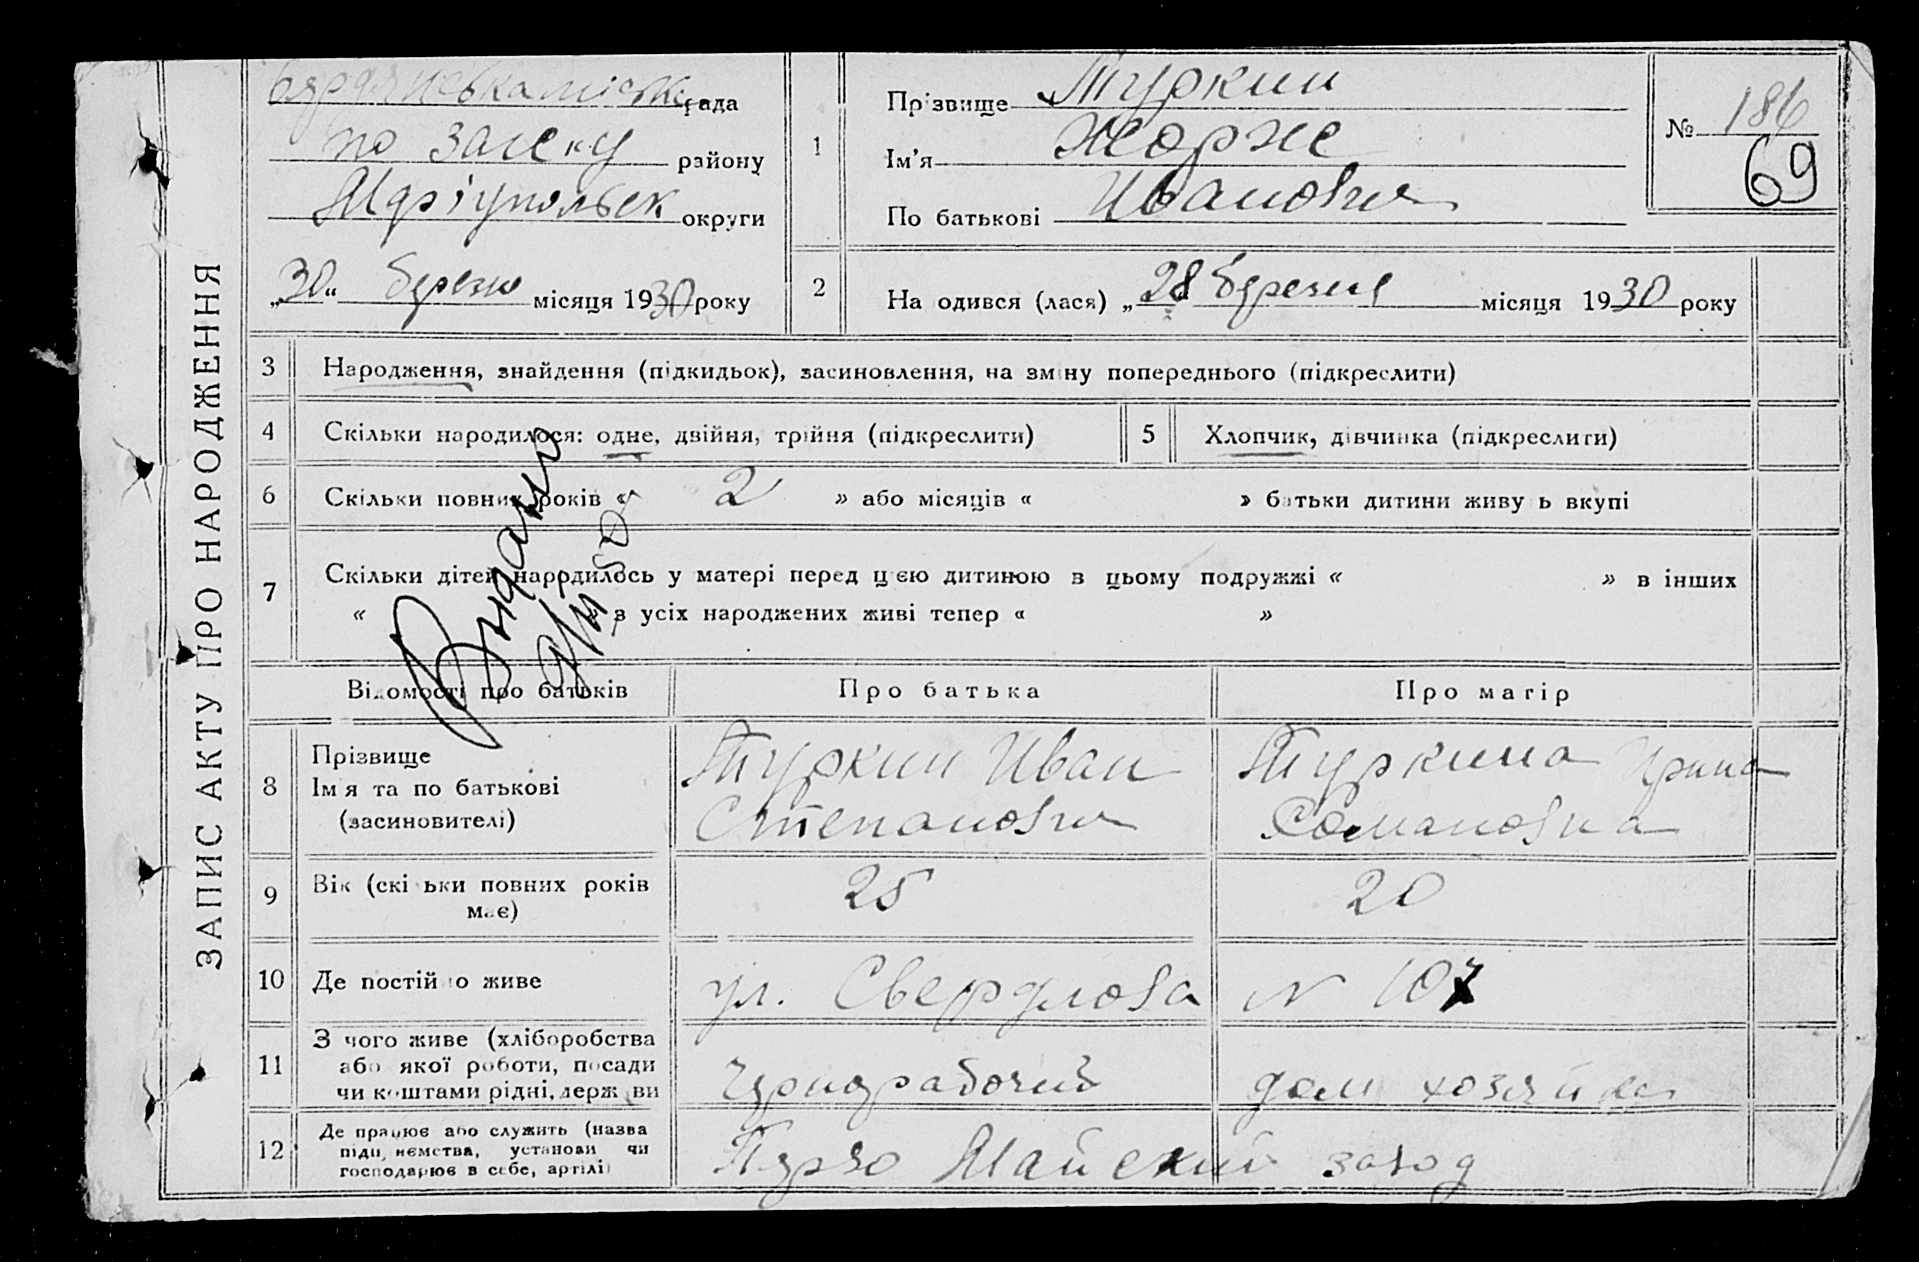 ЗАПИС АКТУ ПРО НАРОДЖЕННЯ
Бердянська міська рада
по загсу району
Маріупольськ округи
„30“ березня місяця 1930 року
1
Прізвище Туркин
Ім'я Жорж
По батькові Иванович
№ 186
69
2
На одився (лася) „28“ березня місяця 1930 року
3 Народження, знайдення (підкидьок), засиновлення, на зміну попереднього (підкреслити)
4 Скільки народилося: одне, двійня, трійня (підкреслити)
5 Хлопчик, дівчинка (підкреслити)
6 Скільки повних років « 2 » або місяців « » батьки дитини живуть вкупі
7 Скільки дітей народилось у матері перед цією дитиною в цьому подружжі « » в інших
« » з усіх народжених живі тепер « »
Видано
Відомості про батьків
Про батька
Про матір
8 Прізвище
Ім я та по батькові
(засиновителі)
Туркин Иван
Степанович
Туркина Ирина
Романовна
9 Вік (скільки повних років
має)
25
20
10 Де постійно живе
ул. Свердлова № 107
11 З чого живе (хліборобства
або якої роботи, посади
чи коштами рідні, держави
чернорабочий
дом хозяйка
12 Де працює або служить (назва
підприємства, установи чи
господарює в себе, артілі)
Перво Майский завод